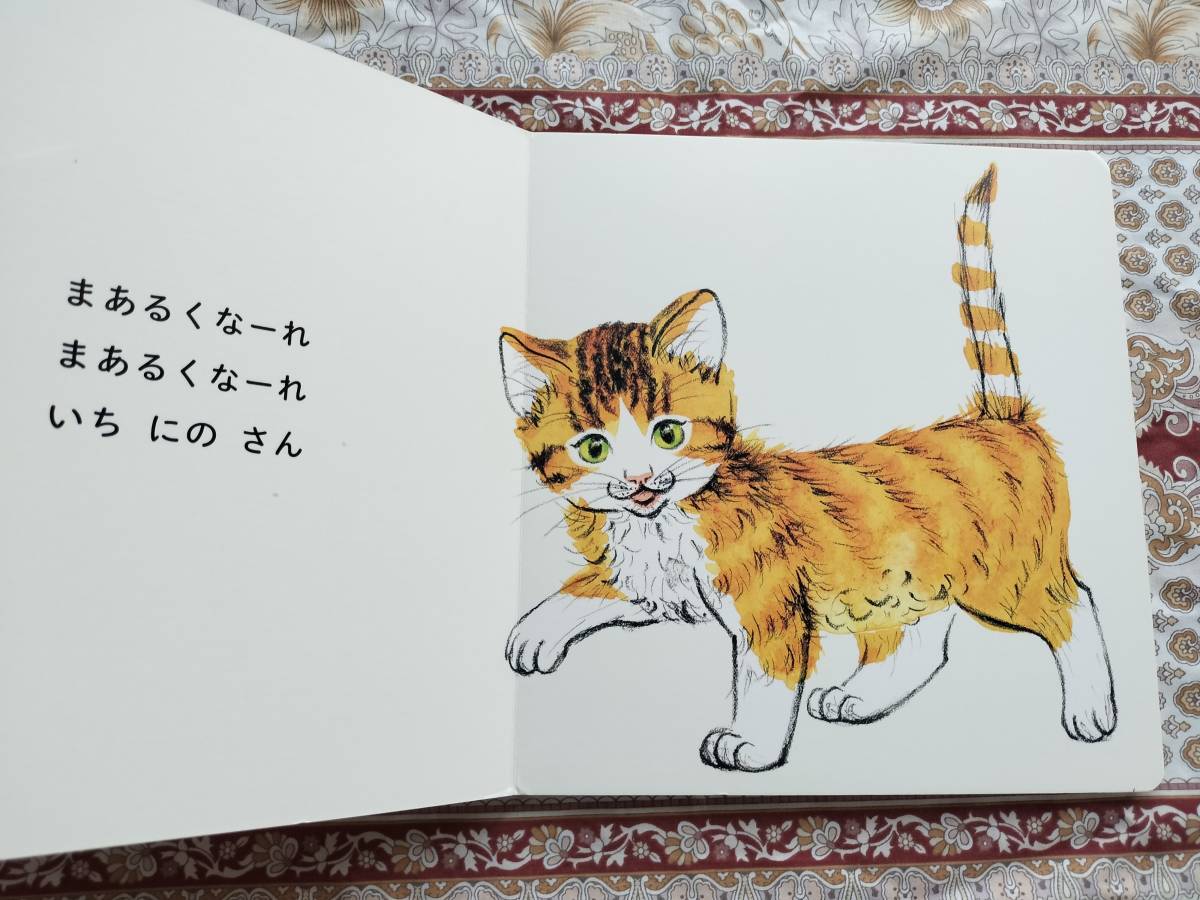 まあるくなーれ
まあるくなーれ
いち にの さん